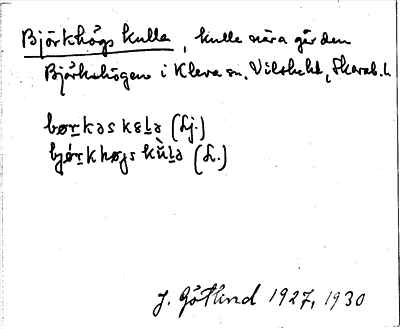 Björkhögs kulle, kulle nära gården
Björkhögen i Kleva sn, Vilske hd, Skarab. l.
bør̲kəs kɛl̲ə (Lj.)
bjǿr̲khøɟs kùl̲ə (L.)
J. Götlind 1927, 1930